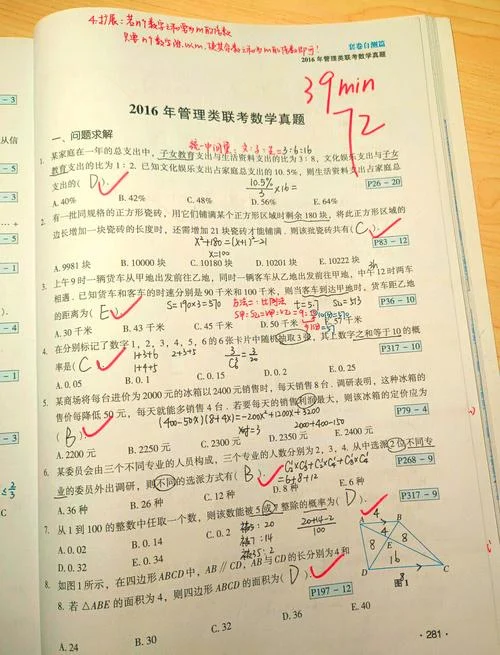 4. 扩展：若n个数字之和要为m的倍数
套卷自测篇
2016年管理类联考数学真题
39min
72
2016年管理类联考数学真题
一、问题求解
1. 某家庭在一年的总支出中，子女教育支出与生活资料支出的比为3：8，文化娱乐支出与子女
教育支出的比为1：2. 已知文化娱乐支出占家庭总支出的10.5%，则生活资料支出占家庭总
支出的( D )
10.5%/3 ×16=
P26-20
A. 40% B. 42% C. 48% D. 56% E. 64%
2. 有一批同规格的正方形瓷砖，用它们铺满某个正方形区域时剩余180块，将此正方形区域的
边长增加一块瓷砖的长度时，还需增加21块瓷砖才能铺满，则该批瓷砖共有( C )
x²+180=(x+1)²-21
P83-12
x=100
A. 9981块 B. 10000块 C. 10180块 D. 10201块 E. 10222块
3. 上午9时一辆货车从甲地出发前往乙地，同时一辆客车从乙地出发前往甲地，中午12时两车
3h
相遇. 已知货车和客车的时速分别是90千米和100千米，则当客车到达甲地时，货车距乙地
的距离为( E )
S=190×3=570
方法二：比例法
t=5.7 S货=513
P36-10
A. 30千米 B. 43千米 C. 45千米 D. 50千米 E. 57千米
4. 在分别标记了数字1、2、3、4、5、6的6张卡片中随机抽取3张，其上数字之和等于10的概
率是( C )
1+3+6 2+3+5
1+4+5
3/C₆³=3/20
P317-10
A. 0.05 B. 0.1 C. 0.15 D. 0.2 E. 0.25
5. 某商场将每台进价为2000元的冰箱以2400元销售时，每天销售8台. 调研表明，这种冰箱的
售价每降低50元，每天就能多销售4台. 若要每天的销售利润最大，则该冰箱的定价应为
( B )
(400-50x)(8+4x)=-200x²+1200x+3200
P79-4
x=3
2000+400-150
A. 2200元 B. 2250元 C. 2300元 D. 2350元 E. 2400元
6. 某委员会由三个不同专业的人员构成，三个专业的人数分别为2，3，4. 从中选派2位不同专
业的委员外出调研，则不同的选派方式有( B )
C₂¹C₃¹+C₂¹C₄¹+C₃¹C₄¹
=6+8+12
P268-9
A. 36种 B. 26种 C. 12种 D. 8种 E. 6种
7. 从1到100的整数中任取一个数，则该数能被5或7整除的概率为( D )
P317-9
A. 0.02 B. 0.14 C. 0.2
5：20
7：14
35：2
20+14-2/100
D. 0.32 E. 0.34
8. 如图1所示，在四边形ABCD中，AB∥CD，AB与CD的长分别为4和
8. 若△ABE的面积为4，则四边形ABCD的面积为( D )
P197-12
A 4 B
4
8 E 8
16
D 8 C
图1
A. 24 B. 30 C. 32 D. 36 E. 40
· 281 ·